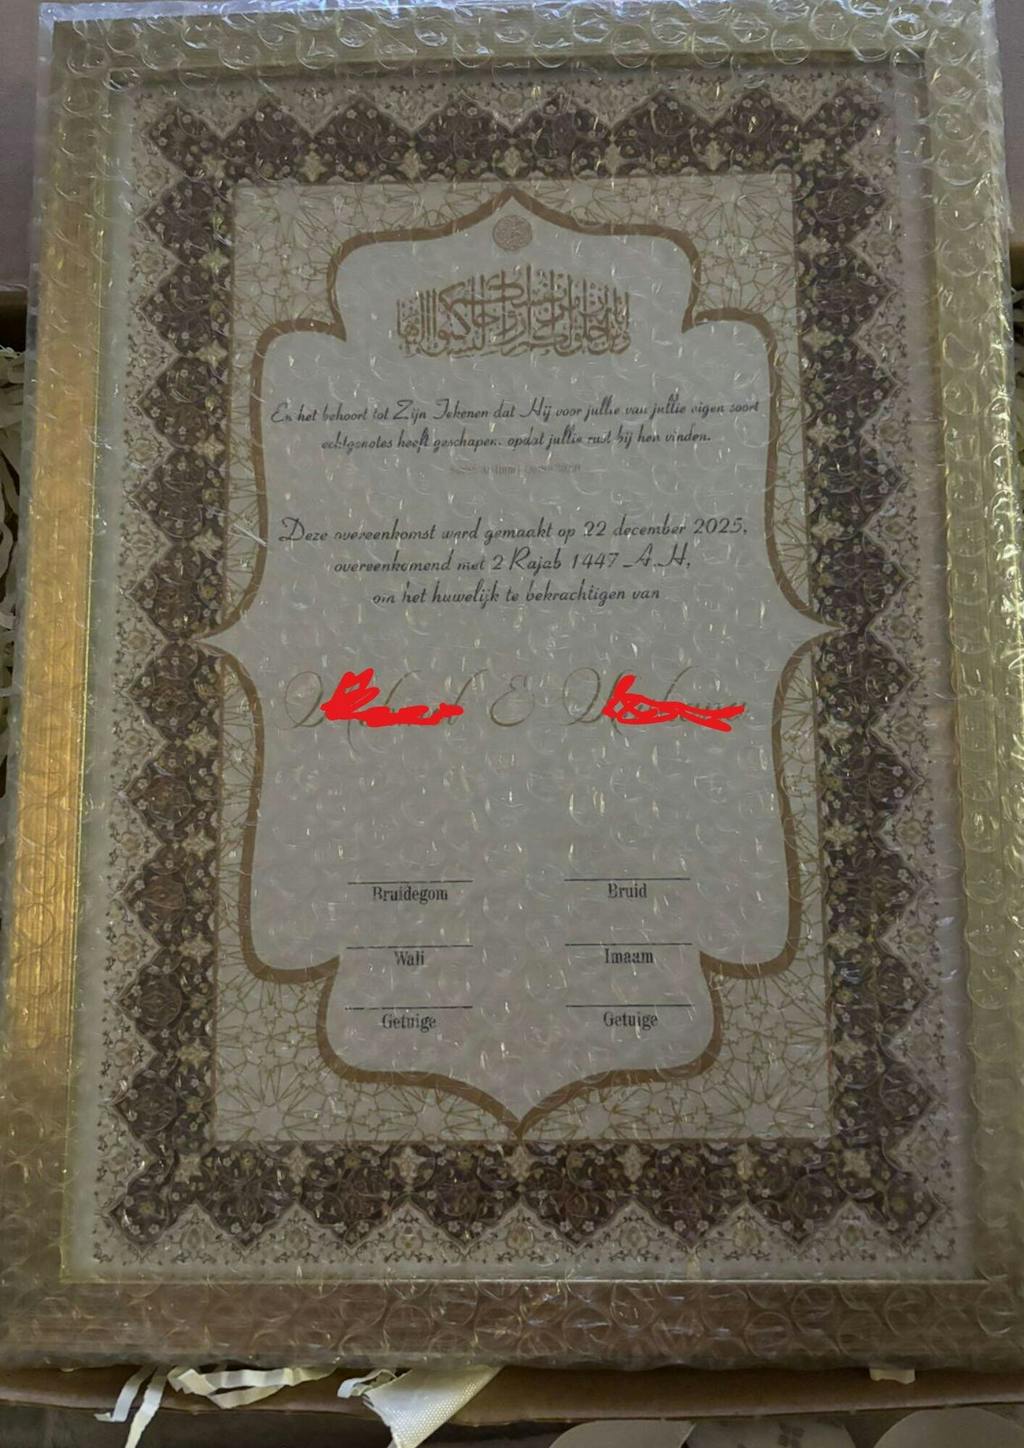 ومن آياته أن خلق لكم من أنفسكم أزواجا لتسكنوا إليها
En het behoort tot Zijn Tekenen dat Hij voor jullie van jullie eigen soort
echtgenotes heeft geschapen, opdat jullie rust bij hen vinden.
Deze overeenkomst werd gemaakt op 22 december 2025,
overeenkomend met 2 Rajab 1447 A.H,
om het huwelijk te bekrachtigen van
&
Bruidegom
Bruid
Wali
Imaam
Getuige
Getuige